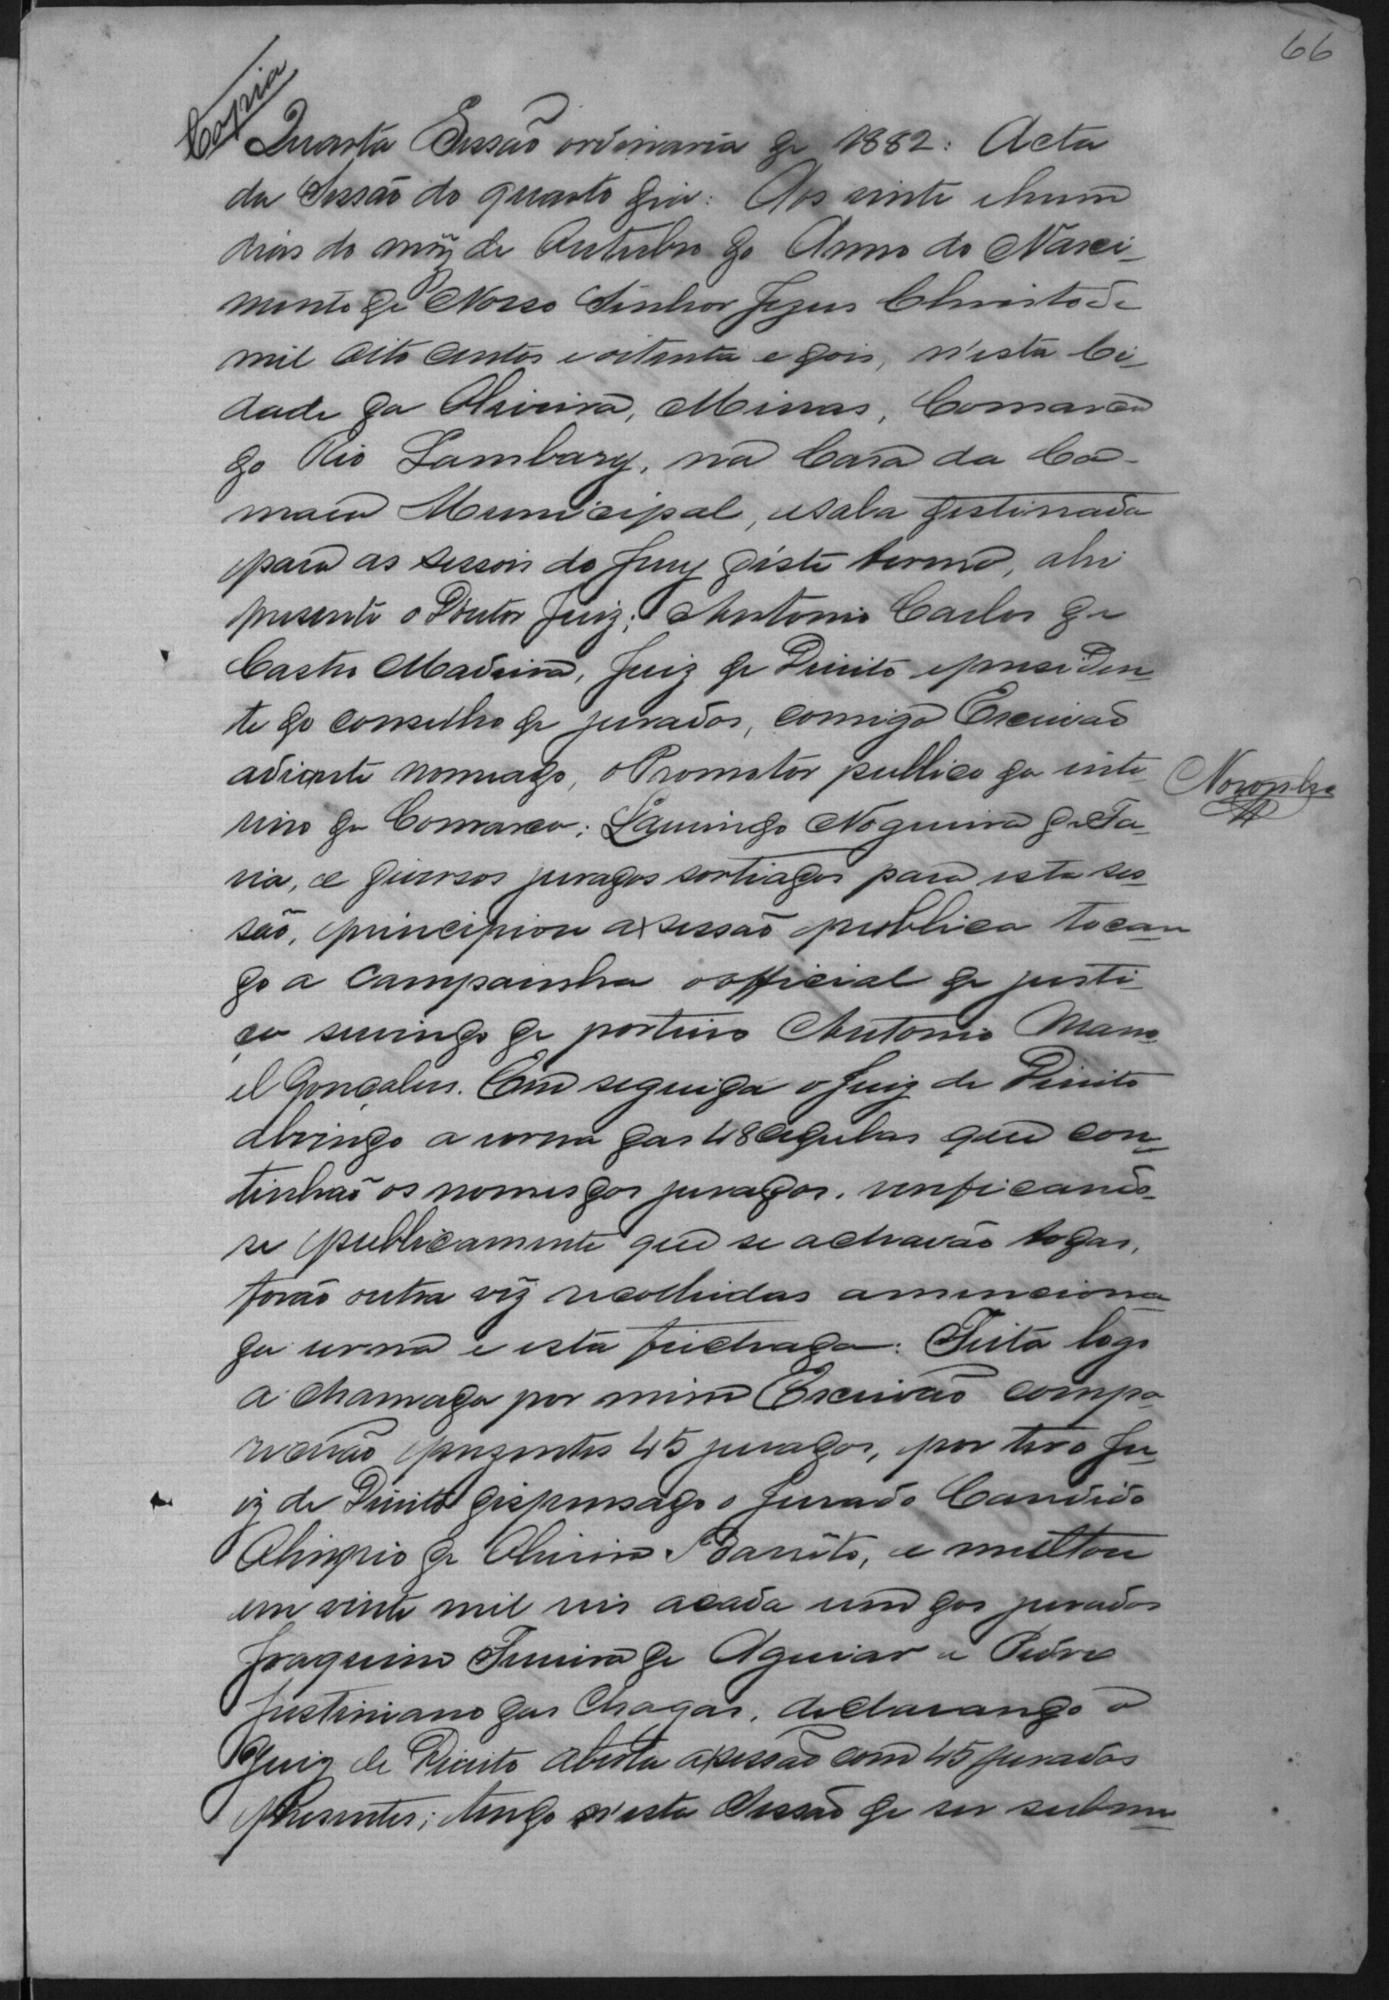 66
Copia
Quarta Sessão ordinaria de 1882: Acta
da Sessão do quarto dia: Aos vinte e hum
dias do mez de Outubro do Anno do Nasci-
mento de Nosso Senhor Jezus Christo de
mil oito centos e oitenta e dois, n'esta Ci-
dade da Oliveira, Minas, Comarca
do Rio Lambary, na Casa da Ca-
mara Municipal, e sala destinada
para as sessois do Jury d'este termo, ahi
presente o Doutor Juiz; Antonio Carlos de
Castro Madeira, Juiz de Direito e presiden-
te do conselho de jurados, comigo Escrivão
adiante nomeado, o Promotor publico da inte
rino da Comarca; Nogueira de Fa-
ria, e diversos jurados sortiados para esta ses-
são, principiou a sessão publica tocan
do a campainha o official de justi-
ça servindo de porteiro Antonio Mano-
el Gonçalves. Em seguida o Juiz de Direito
abrindo a urna das 48 cedulas que con-
tinhão os nomes dos jurados, verficando-
se publicamente que se achavão todas,
forão outra vez recolhidas a menciona-
da urna e esta feichada: Feita logo
a chamada por mim Escrivão compa-
recerão prezentes 45 jurados, por ter o Ju-
iz de Direito dispensado o jurado Candido
Olimpio de Oliveira Barreto, e multou
em vinte mil reis a cada um dos jurados
Joaquim Ferreira de Aguiar e Pedro
Justiniano das Chagas, declarando o
Juiz de Direito aberta a sessão com 45 jurados
presentes; tendo n'esta Sessão de ser subme-